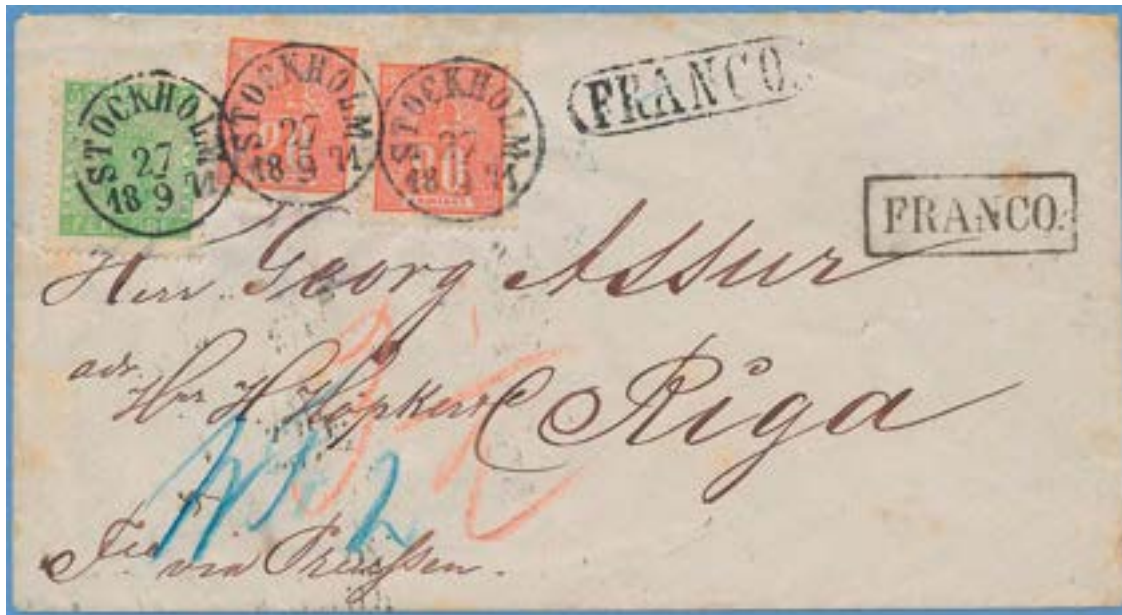 STOCKHOLM
27
18 9 71
STOCKHOLM
27
18 9 71
20
STOCKHOLM
27
18 9 71
20
FRANCO.
FRANCO.
Herr Georg Assur
adr.
Hrr H. Höpker
Riga
via Preussen.